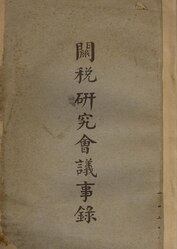 關税研究會議事錄